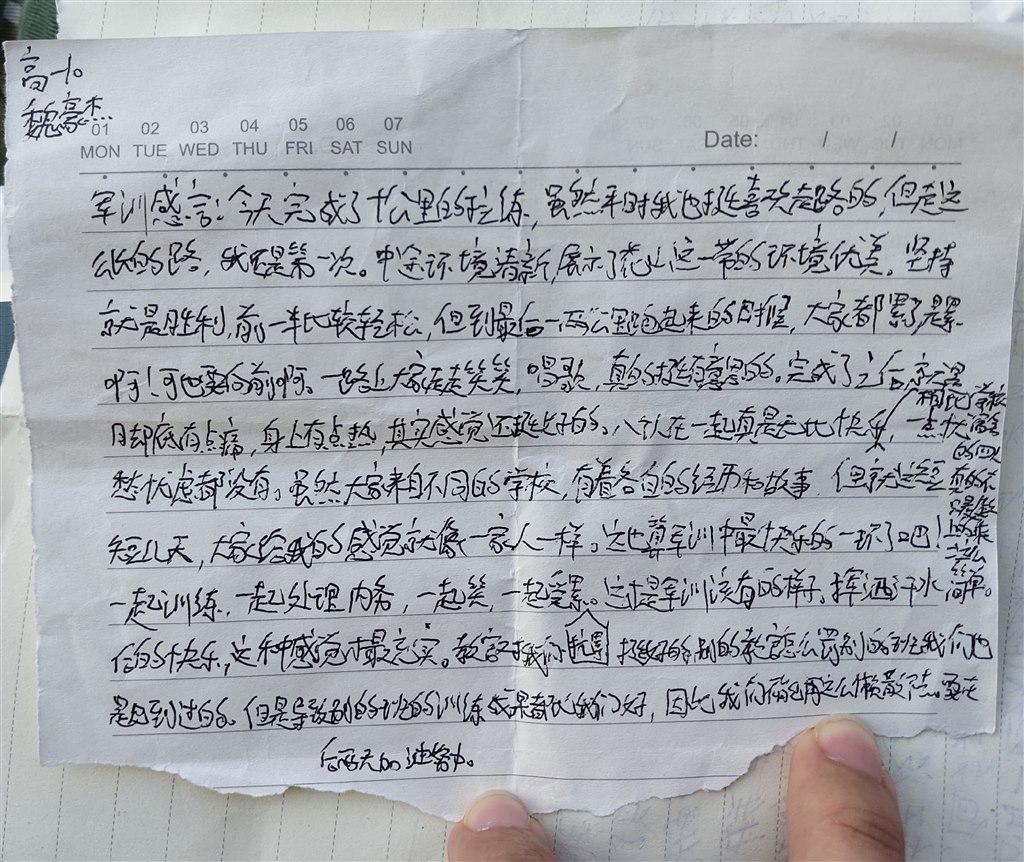 高一10
魏豪杰
01 02 03 04 05 06 07
MON TUE WED THU FRI SAT SUN
Date: / /
军训感言:今天完成了十公里的拉练,虽然平时我也挺喜欢走路的,但走这
么长的路,我还是第一次。中途环境清新,展示了花山这一带的环境优美。坚持
就是胜利,前一半比较轻松,但到最后一两公里跑起来的时候,大家都累了,是累
啊!可也要向前啊。一路上大家走走笑笑,唱歌,真的挺有意思的。完成了之后,就是
脚底有点痛,身上有点热,其实感觉还挺好的。八个人在一起真是无比快乐,一点忧
愁忧虑都没有。虽然大家来自不同的学校,有着各自的经历和故事,但就这短
短几天,大家给我的感觉就像一家人一样。这也算军训中最快乐的一环了吧!
一起训练,一起处理内务,一起笑,一起受累。这才是军训该有的样子,挥洒汗水
后的快乐,这种感觉才最充实。教官对我们 挺好的,别的教官怎么罚别的班我们也
是见到过的。但是导致别的班的训练成果都比我们好,因此我们不能再这么懒散下去。要在
后两天加油努力。
相比学校
宿舍
的四人
真的不
是
上的来
这么
简单。